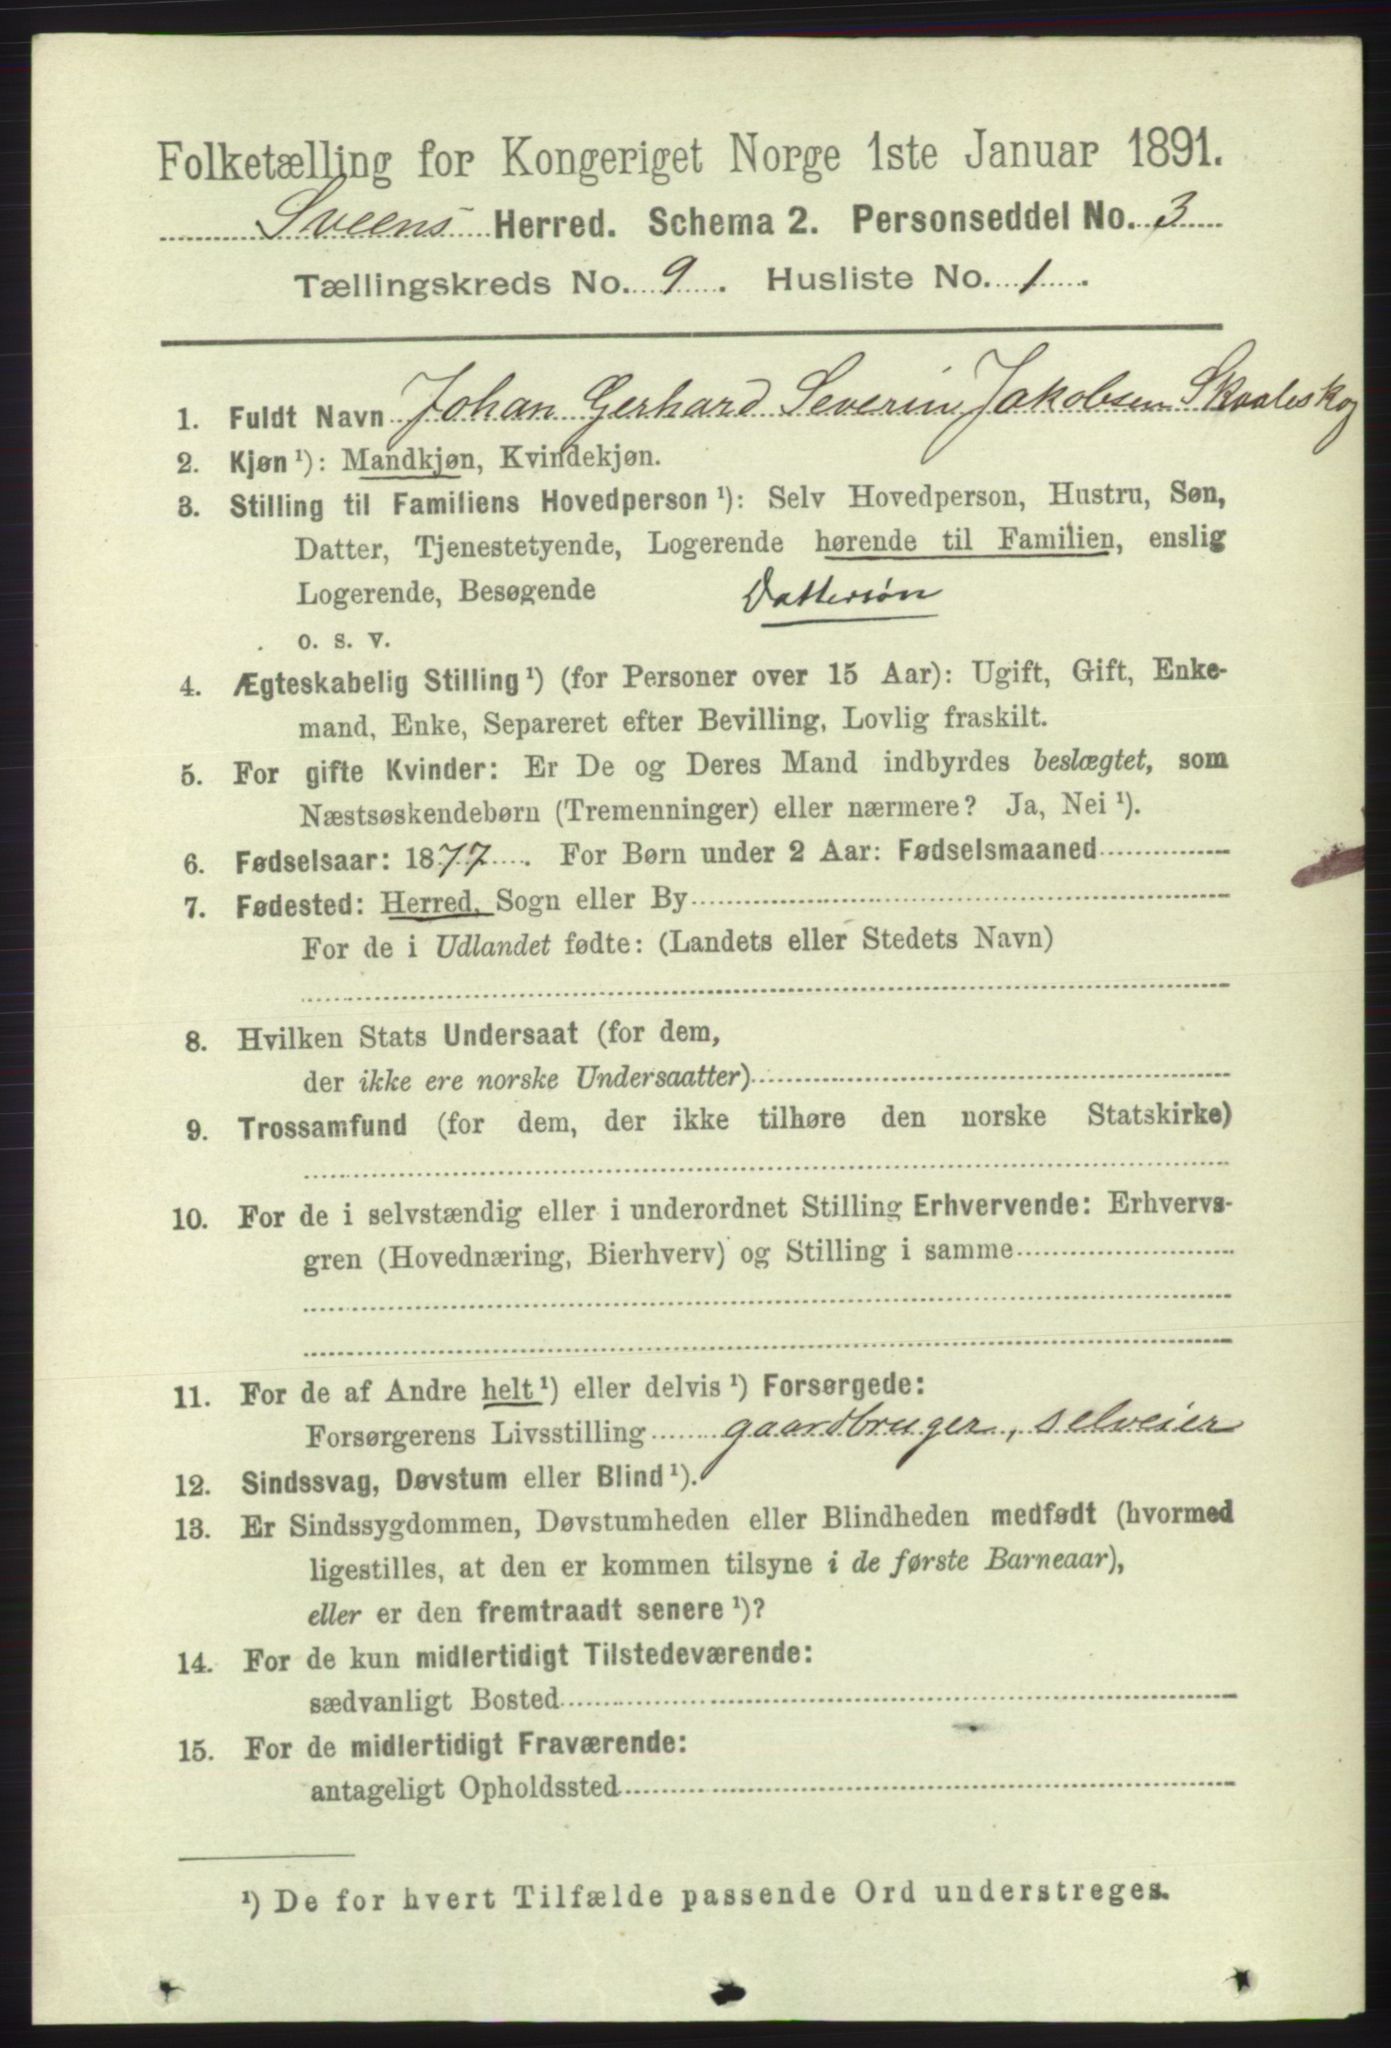 Folketælling for Kongeriget Norge 1ste Januar 1891.
Sveens Herred. Schema 2. Personseddel No. 3
Tællingskreds No. 9. Husliste No. 1.
1. Fuldt Navn Johan Gerhard Severin Jakobsen Skaaleskog
2. Kjøn ¹): Mandkjøn, Kvindekjøn.
3. Stilling til Familiens Hovedperson ¹): Selv Hovedperson, Hustru, Søn,
Datter, Tjenestetyende, Logerende hørende til Familien, enslig
Logerende, Besøgende Dattersøn
o. s. v.
4. Ægteskabelig Stilling ¹) (for Personer over 15 Aar): Ugift, Gift, Enke-
mand, Enke, Separeret efter Bevilling, Lovlig fraskilt.
5. For gifte Kvinder: Er De og Deres Mand indbyrdes beslægtet, som
Næstsøskendebørn (Tremenninger) eller nærmere? Ja, Nei ¹).
6. Fødselsaar: 1877. For Børn under 2 Aar: Fødselsmaaned
7. Fødested: Herred, Sogn eller By
For de i Udlandet fødte: (Landets eller Stedets Navn)
8. Hvilken Stats Undersaat (for dem,
der ikke ere norske Undersaatter)
9. Trossamfund (for dem, der ikke tilhøre den norske Statskirke)
10. For de i selvstændig eller i underordnet Stilling Erhvervende: Erhvervs-
gren (Hovednæring, Bierhverv) og Stilling i samme
11. For de af Andre helt ¹) eller delvis ¹) Forsørgede:
Forsørgerens Livsstilling gaardbruger, selveier
12. Sindssvag, Døvstum eller Blind ¹).
13. Er Sindssygdommen, Døvstumheden eller Blindheden medfødt (hvormed
ligestilles, at den er kommen tilsyne i de første Barneaar),
eller er den fremtraadt senere ¹)?
14. For de kun midlertidigt Tilstedeværende:
sædvanligt Bosted
15. For de midlertidigt Fraværende:
antageligt Opholdssted
¹) De for hvert Tilfælde passende Ord understreges.